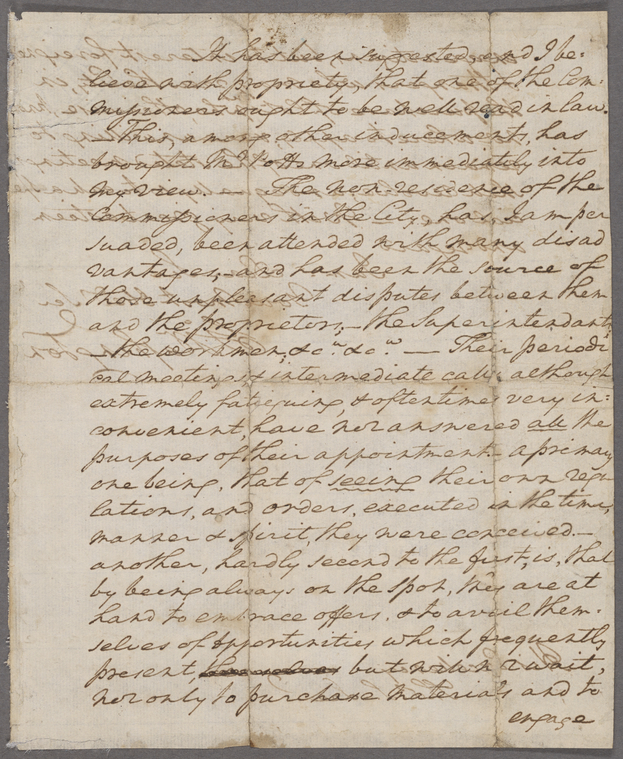 It has been suggested, and I be-
lieve with propriety, that one of the Com-
missioners ought to be well read in law.
—This, among other inducements, has
brought Mr. Potts more immediately into
my view. The non-residence of the
Commissioners in the City, has, I am per
suaded, been attended with many disad
vantages,—and has been the source of
those unpleasant disputes between them
and the proprietors,—the Superintendants
—the workmen, &ca. &ca. — Their periodi
cal meetings, & intermediate calls, although
extremely fatiguing, & oftentimes very in-
convenient, have not answered all the
purposes of their appointment—a primary
one being, that of seeing their own regu
lations, and orders, executed in the time,
manner & spirit, they were conceived.—
another, hardly second to the first, is, that
by being always on the spot, they are at
hand to embrace offers, & to avail them-
selves of opportunities which frequently
present, themselves but will not wait,
not only to purchase materials and to
engage